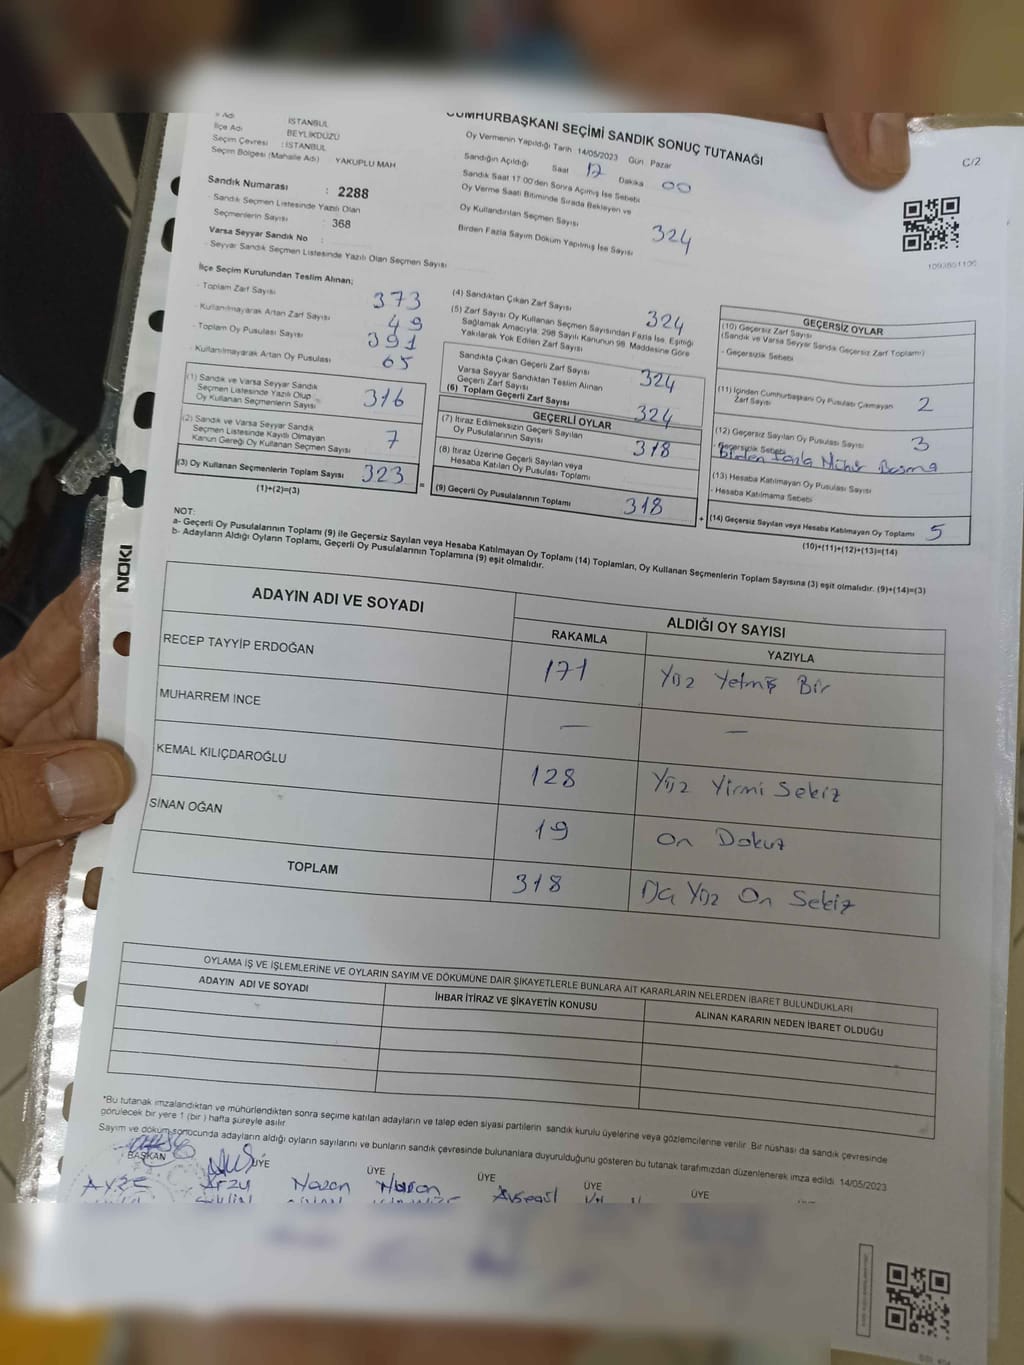 İl Adı İSTANBUL
İlçe Adı BEYLİKDÜZÜ
Seçim Çevresi : İSTANBUL
Seçim Bölgesi (Mahalle Adı) YAKUPLU MAH
Sandık Numarası : 2288
- Sandık Seçmen Listesinde Yazılı Olan
Seçmenlerin Sayısı : 368
Varsa Seyyar Sandık No :
- Seyyar Sandık Seçmen Listesinde Yazılı Olan Seçmen Sayısı
CUMHURBAŞKANI SEÇİMİ SANDIK SONUÇ TUTANAĞI
C/2
Oy Vermenin Yapıldığı Tarih 14/05/2023 Gün Pazar
Sandığın Açıldığı Saat 17 Dakika 00
Sandık Saat 17 00'den Sonra Açılmış İse Sebebi
Oy Verme Saati Bitiminde Sırada Bekleyen ve
Oy Kullandırılan Seçmen Sayısı
Birden Fazla Sayım Döküm Yapılmış İse Sayısı 324
İlçe Seçim Kurulundan Teslim Alınan;
- Toplam Zarf Sayısı 373
- Kullanılmayarak Artan Zarf Sayısı 49
- Toplam Oy Pusulası Sayısı 391
- Kullanılmayarak Artan Oy Pusulası 65
(1) Sandık ve Varsa Seyyar Sandık
Seçmen Listesinde Yazılı Olup
Oy Kullanan Seçmenlerin Sayısı 316
(2) Sandık ve Varsa Seyyar Sandık
Seçmen Listesinde Kayıtlı Olmayan
Kanun Gereği Oy Kullanan Seçmen Sayısı 7
(3) Oy Kullanan Seçmenlerin Toplam Sayısı 323
(1)+(2)=(3)
(4) Sandıktan Çıkan Zarf Sayısı 324
(5) Zarf Sayısı Oy Kullanan Seçmen Sayısından Fazla İse, Eşitliği
Sağlamak Amacıyla; 298 Sayılı Kanunun 98. Maddesine Göre
Yakılarak Yok Edilen Zarf Sayısı
Sandıkta Çıkan Geçerli Zarf Sayısı 324
Varsa Seyyar Sandıktan Teslim Alınan
Geçerli Zarf Sayısı
(6) Toplam Geçerli Zarf Sayısı 324
GEÇERLİ OYLAR
(7) İtiraz Edilmeksizin Geçerli Sayılan
Oy Pusulalarının Sayısı 318
(8) İtiraz Üzerine Geçerli Sayılan veya
Hesaba Katılan Oy Pusulası Toplamı
= (9) Geçerli Oy Pusulalarının Toplamı 318 +
GEÇERSİZ OYLAR
(10) Geçersiz Zarf Sayısı
(Sandık ve Varsa Seyyar Sandık Geçersiz Zarf Toplamı)
- Geçersizlik Sebebi
(11) İçinden Cumhurbaşkanı Oy Pusulası Çıkmayan
Zarf Sayısı 2
(12) Geçersiz Sayılan Oy Pusulası Sayısı 3
- Geçersizlik Sebebi
Birden Fazla Mühür Basma
(13) Hesaba Katılmayan Oy Pusulası Sayısı
- Hesaba Katılmama Sebebi
(14) Geçersiz Sayılan veya Hesaba Katılmayan Oy Toplamı 5
(10)+(11)+(12)+(13)=(14)
NOT:
a- Geçerli Oy Pusulalarının Toplamı (9) ile Geçersiz Sayılan veya Hesaba Katılmayan Oy Toplamı (14) Toplamları, Oy Kullanan Seçmenlerin Toplam Sayısına (3) eşit olmalıdır. (9)+(14)=(3)
b- Adayların Aldığı Oyların Toplamı, Geçerli Oy Pusulalarının Toplamına (9) eşit olmalıdır.
NOKI
ADAYIN ADI VE SOYADI ALDIĞI OY SAYISI
RAKAMLA YAZIYLA
RECEP TAYYİP ERDOĞAN 171 Yüz Yetmiş Bir
MUHARREM İNCE — —
KEMAL KILIÇDAROĞLU 128 Yüz Yirmi Sekiz
SİNAN OĞAN 19 On Dokuz
TOPLAM 318 Yüz On Sekiz
OYLAMA İŞ VE İŞLEMLERİNE VE OYLARIN SAYIM VE DÖKÜMÜNE DAİR ŞİKAYETLERLE BUNLARA AİT KARARLARIN NELERDEN İBARET BULUNDUKLARI
ADAYIN ADI VE SOYADI İHBAR İTİRAZ VE ŞİKAYETİN KONUSU ALINAN KARARIN NEDEN İBARET OLDUĞU
*Bu tutanak imzalandıktan ve mühürlendikten sonra seçime katılan adayların ve talep eden siyasi partilerin sandık kurulu üyelerine veya gözlemcilerine verilir. Bir nüshası da sandık çevresinde
görülecek bir yere 1 (bir ) hafta süreyle asılır.
Sayım ve döküm sonucunda adayların aldığı oyların sayılarını ve bunların sandık çevresinde bulunanlara duyurulduğunu gösteren bu tutanak tarafımızdan düzenlenerek imza edildi. 14/05/2023
BAŞKAN ÜYE ÜYE ÜYE ÜYE ÜYE
AYŞE Arzu Hasan